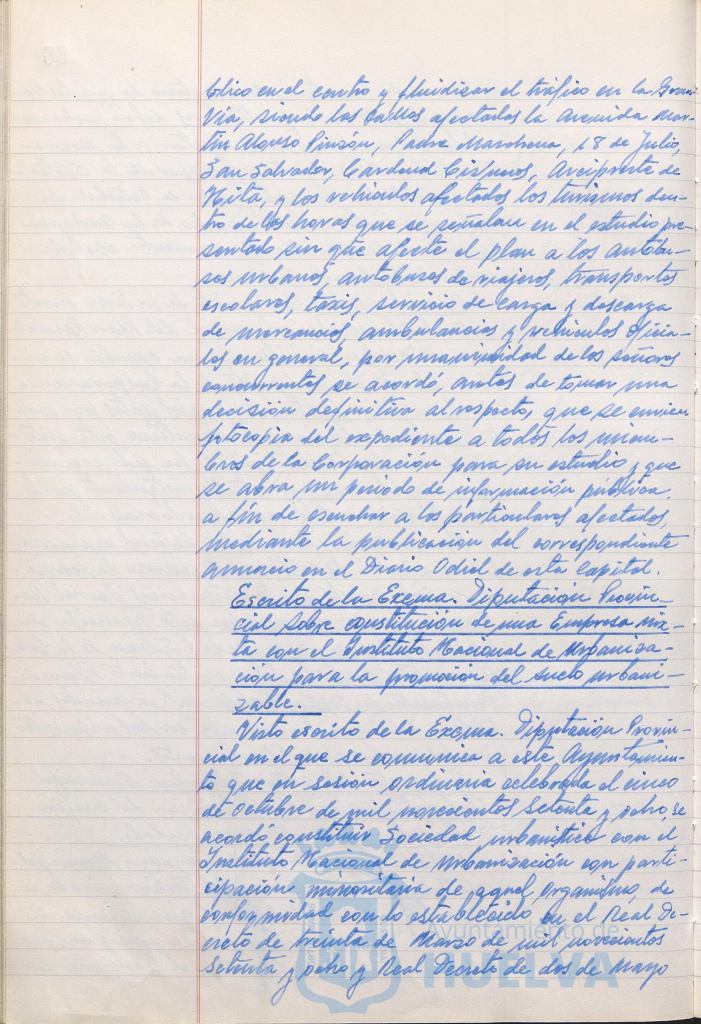 blico en el centro y fluidizar el tráfico en la Gran
Vía, siendo las calles afectadas la Avenida Mar-
tín Alonso Pinzón, Padre Marchena, 18 de Julio,
San Salvador, Cardenal Cisneros, Arcipreste de
Hita, y los vehículos afectados los turismos den-
tro de las horas que se señalan en el estudio pre-
sentado sin que afecte el plan a los autobu-
ses urbanos, autobuses de viajeros, transportes
escolares, taxis, servicio de carga y descarga
de mercancías, ambulancias y vehículos oficia-
les en general, por unanimidad de los señores
concurrentes se acordó, antes de tomar una
decisión definitiva al respecto, que se envíen
fotocopia del expediente a todos los miem-
bros de la Corporación para su estudio y que
se abra un periodo de información pública,
a fin de escuchar a los particulares afectados,
mediante la publicación del correspondiente
anuncio en el Diario Odiel de esta Capital.
Escrito de la Excma. Diputación Provin-
cial sobre constitución de una Empresa mix-
ta con el Instituto Nacional de Urbaniza-
ción para la promoción del suelo urbani-
zable.
Visto escrito de la Excma. Diputación Provin-
cial en el que se comunica a este Ayuntamien-
to que en sesión ordinaria celebrada el cinco
de octubre de mil novecientos setenta y ocho, se
acordó constituir Sociedad urbanística con el
Instituto Nacional de Urbanización con parti-
cipación minoritaria de aquel Organismo, de
conformidad con lo establecido en el Real De-
creto de treinta de Marzo de mil novecientos
setenta y ocho y Real Decreto de dos de Mayo
Ayuntamiento de
HUELVA